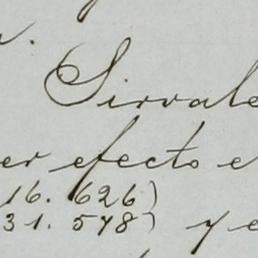 Sirvale
er efecto e
16. 626)
31. 578) y e